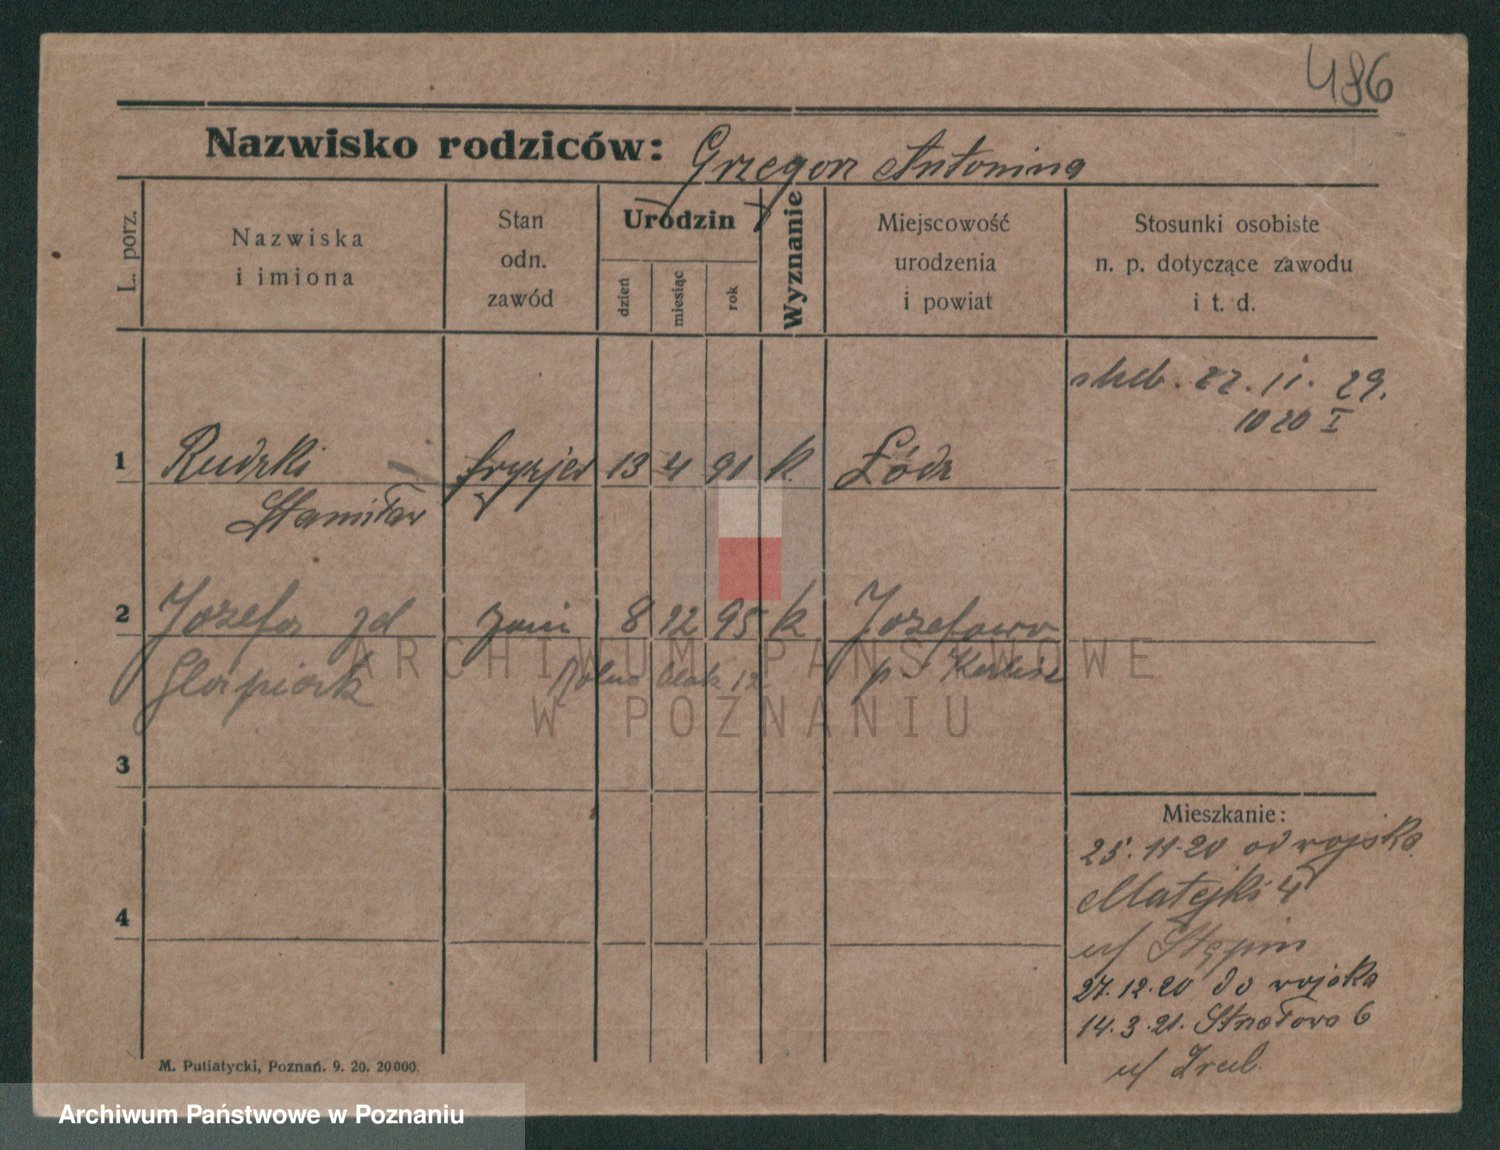 486
Nazwisko rodziców: Grzegorz Antonina
L. porz.
Nazwiska
i imiona
Stan
odn.
zawód
Urodzin
dzień
miesiąc
rok
Wyznanie
Miejscowość
urodzenia
i powiat
Stosunki osobiste
n. p. dotyczące zawodu
i t. d.
22. 11. 29.
1020 I
1 Rudzki fryzjer 13 4 91 k. Łódz
Stanisław
2 Józefa zd 8 12 95 k Józefowo
Glapiak 12 p.
ARCHIWUM PAŃSTWOWE
W POZNANIU
3
Mieszkanie:
25. 11. 20 od wojska
Matejki 4
u/ Stępin
4
27. 12. 20 do wojska
14. 3. 21. 6
u/
M. Putiatycki, Poznań. 9. 20. 20000.
Archiwum Państwowe w Poznaniu